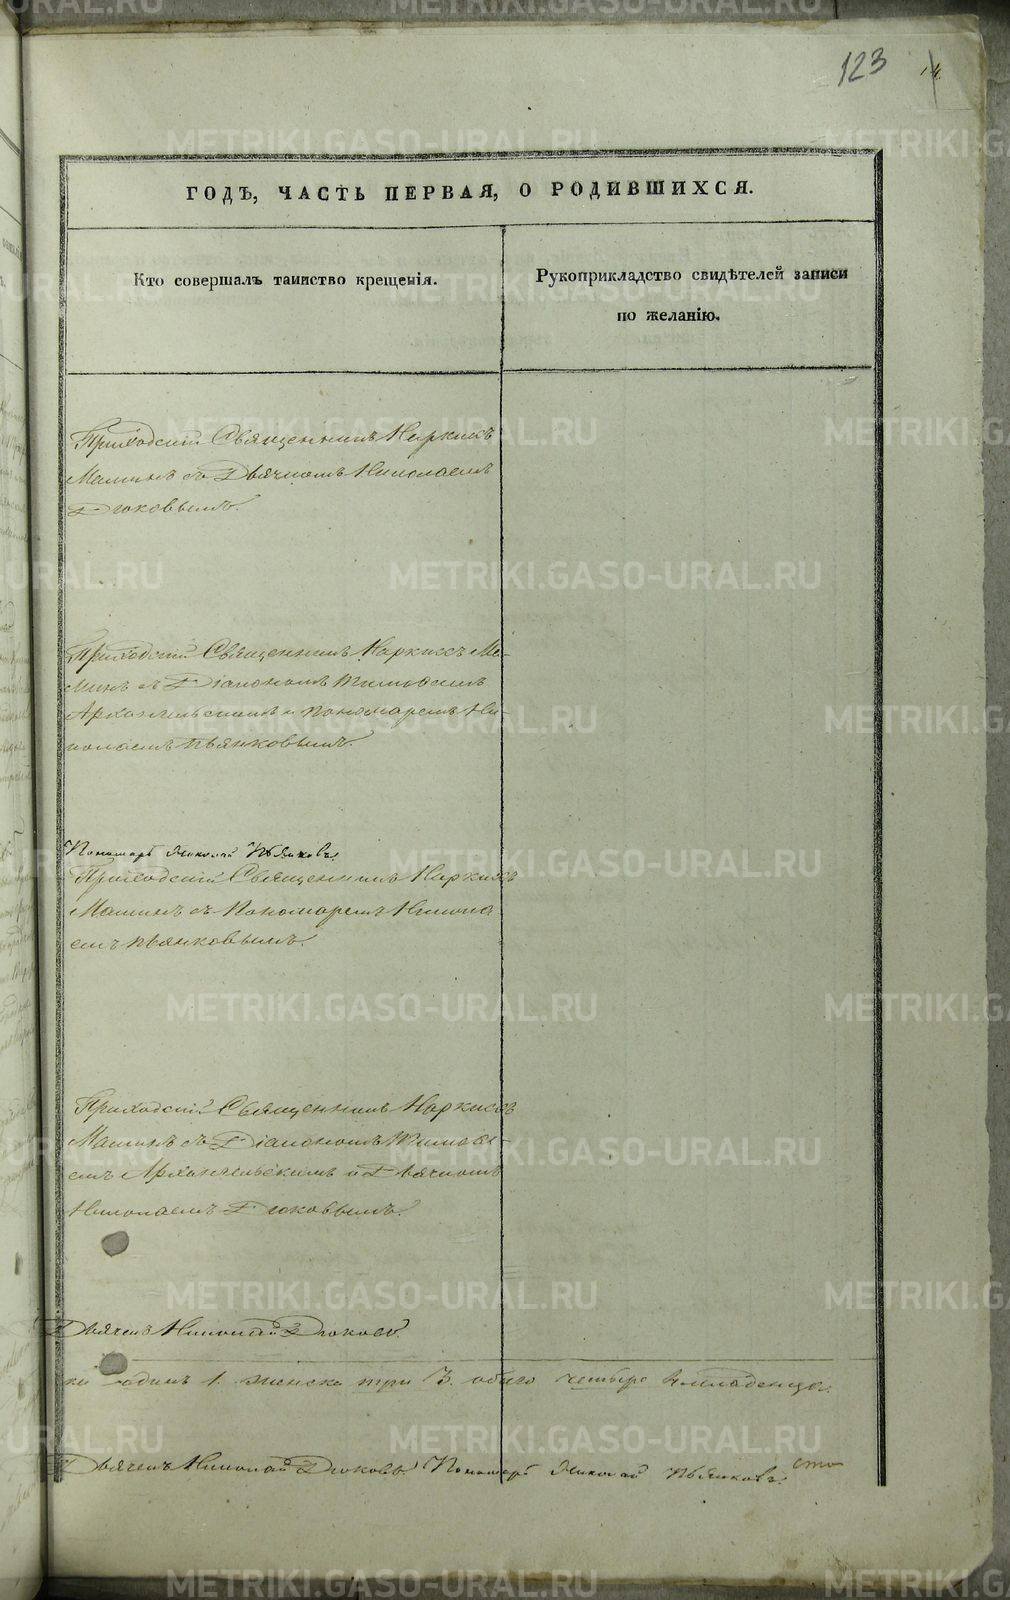 123
14
ГОДЪ, ЧАСТЬ ПЕРВАЯ, О РОДИВШИХСЯ.
Кто совершалъ таинство крещенія.
Рукоприкладство свидѣтелей записи
по желанію.
Приходскій Священникъ Наркисъ
Маминъ съ Дьячкомъ Николаемъ
Дюковымъ.
Приходскій Священникъ Наркисъ Ма-
минъ съ Діакономъ Тимофеемъ
Архангельскимъ и Пономаремъ Ни-
колаемъ Пьянковымъ.
Пономарь Николай Пьянковъ
Приходскій Священникъ Наркисъ
Маминъ съ Пономаремъ Никола
емъ Пьянковымъ.
Приходскій Священникъ Наркисъ
Маминъ съ Діакономъ Тимофе-
емъ Архангельскимъ и Дьячкомъ
Николаемъ Дюковымъ.
Дьячекъ Николай Дюковъ.
одинъ 1. женска три 3. обоего четыре 4 младенца.
Дьячекъ Николай Дюковъ Пономарь Николай Пьянковъ.
METRIKI.GASO-URAL.RU